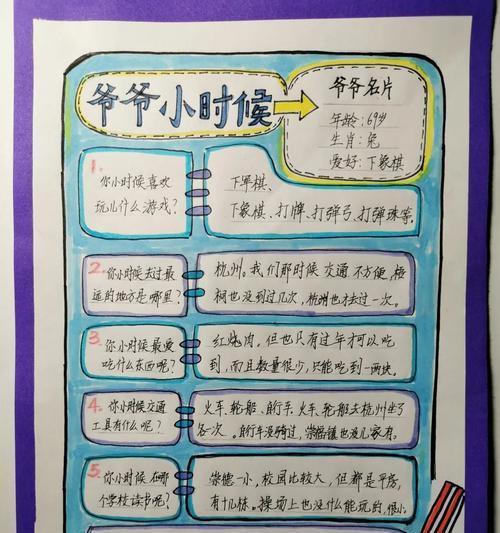 爷爷小时候
爷爷名片
年龄:69岁
生肖:兔
爱好:下象棋
1.
你小时候喜欢
玩儿什么游戏?
下军棋、
下象棋、打牌、打弹弓、打弹珠等。
2.
你小时候去过最
远的地方是哪里?
杭州。我们那时候交通不方便,桐
也没到过几次,杭州也才去过一次。
3.
你小时候最爱
吃什么东西呢?
红烧肉。但也只有过年才可以吃
到,而且数量很少,只能吃到一两块。
4.
你小时候交通
工具有什么呢?
火车、轮船、自行车、火车、轮船去杭州坐了
各一次。自行车没骑过,崇福镇也没几家有。
5.
你小时候在哪
个学校读书呢?
崇德一小,校园比较大,但都是平房,
有十几栋。操场上也没什么能玩的,很小。